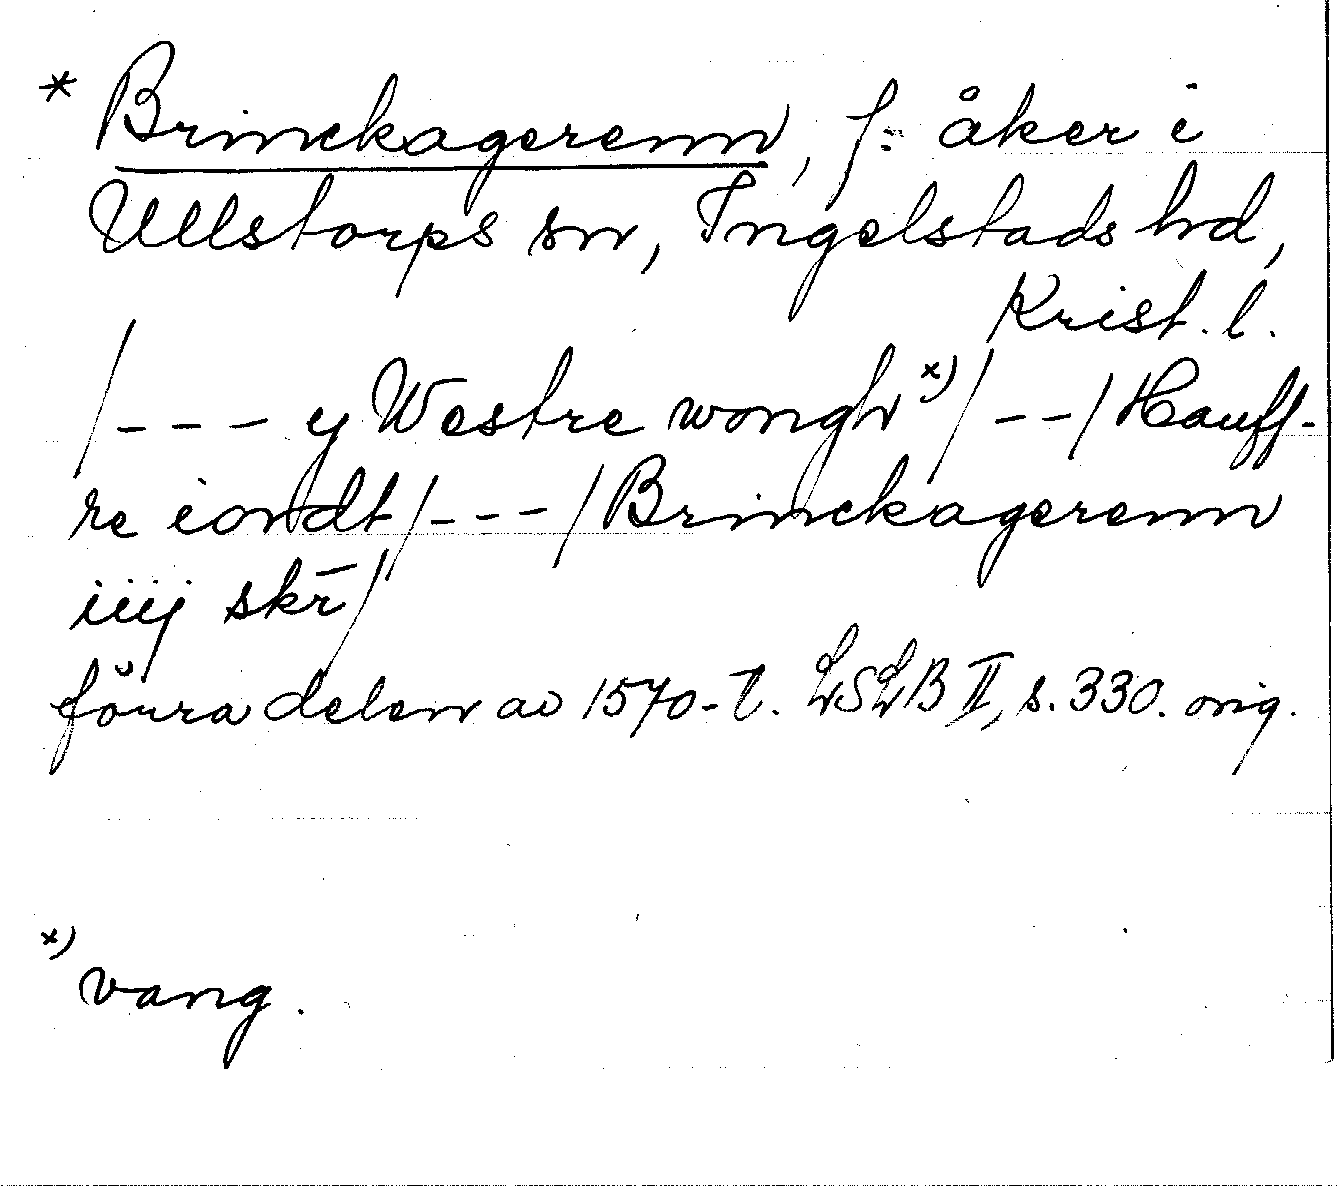 * Brinckagerenn, f. åker i
Ullstorps sn, Ingelstads hd,
Krist. l.
/--- y Westre wongh x) /--/ Hauff-
re iordt /---/ Brinckagerenn
iiij skr̄ /
förra delen av 1570-t. LSLB II, s. 330. orig.
x) vang.